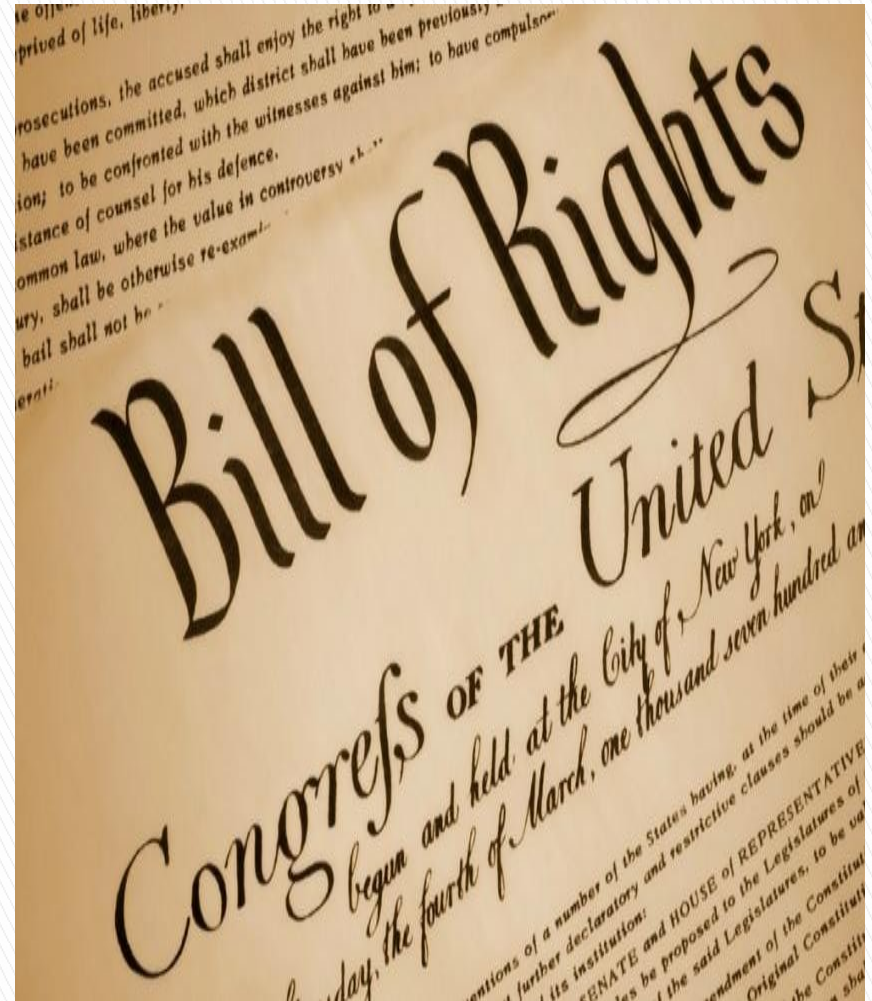 prived of life, liberty,
rosecutions, the accused shall enjoy the right to a
have been committed, which district shall have been previously
ion; to be confronted with the witnesses against him; to have compulsor
istance of counsel for his defence.
ommon law, where the value in controversy
ury, shall be otherwise re-exami
bail shall not be
Bill of Rights
Congreſs OF THE United St
begun and held at the City of New York, on
day, the fourth of March, one thousand seven hundred an
entions of a number of the States having, at the time of their
further declaratory and restrictive clauses should be a
its institution:
SENATE and HOUSE of REPRESENTATIVE
es be proposed to the Legislatures of
the said Legislatures, to be va
endment of the Constitut
Original Constituti
the Constit